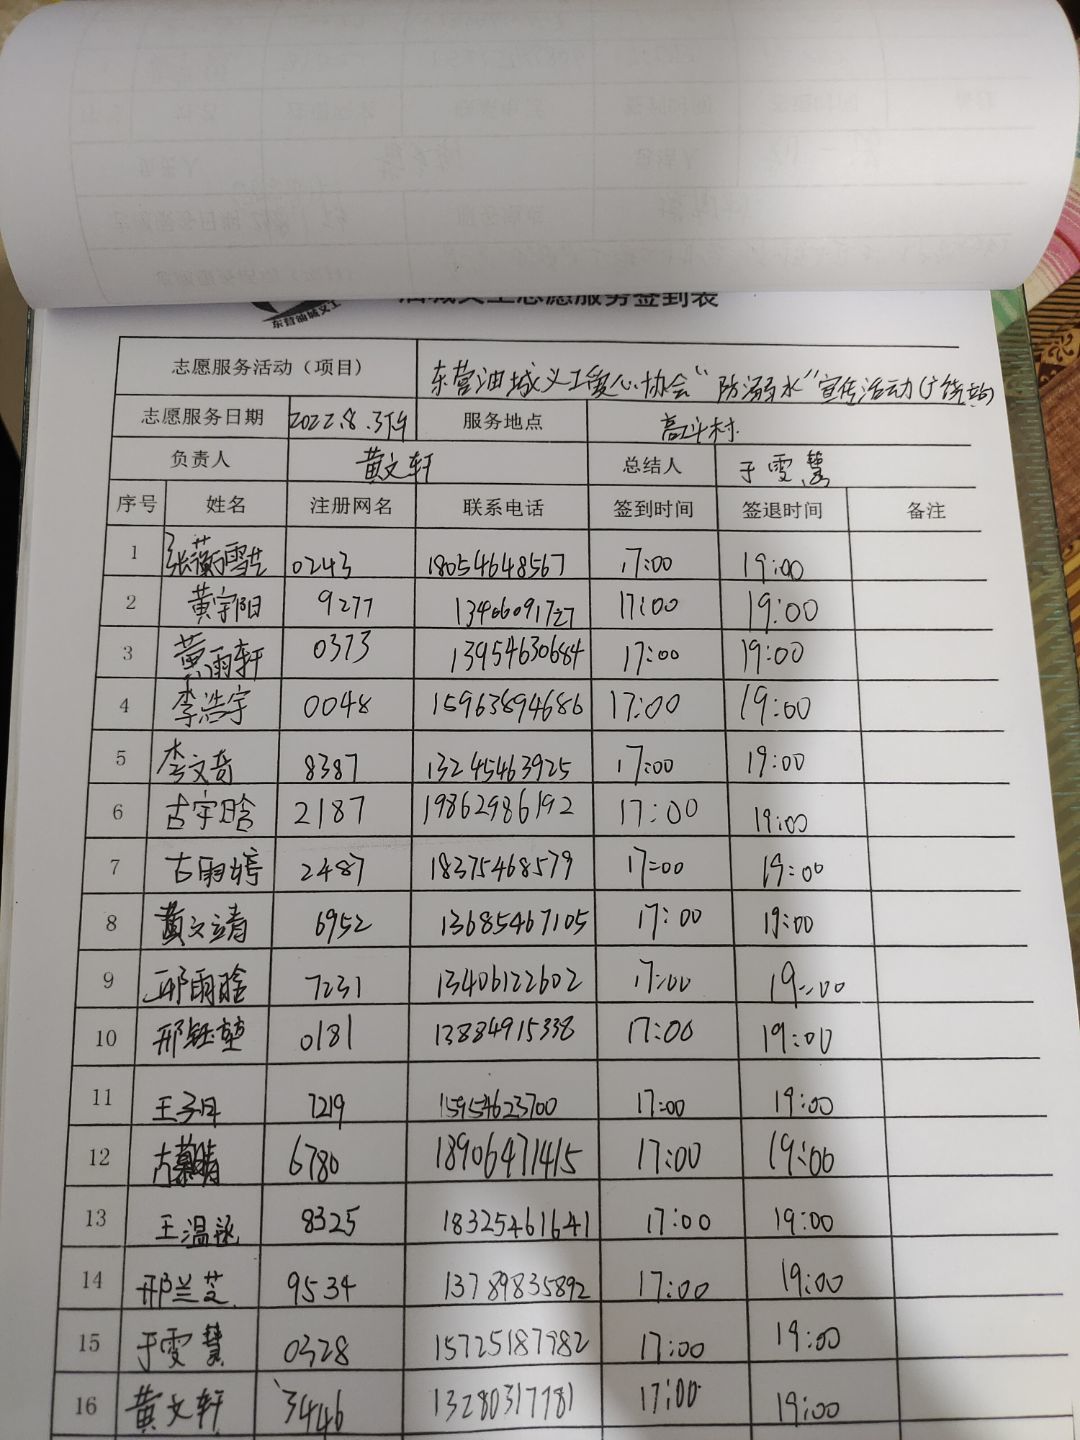 东营油城义工
油城义工志愿服务签到表
志愿服务活动（项目） 东营油城义工爱心协会“防溺水”宣传活动(广饶站)
志愿服务日期 2022.8.3下午 服务地点 高斗村
负责人 黄文轩 总结人 于雯慧
序号 姓名 注册网名 联系电话 签到时间 签退时间 备注
1 0243 18054648567 17:00 19:00
2 黄宇阳 9277 17:00 19:00
3 黄雨轩 0373 13954630684 17:00 19:00
4 李浩宇 0048 15963894686 17:00 19:00
5 李文奇 8387 13245463925 17:00 19:00
6 古宇晗 2187 19862986192 17:00 19:00
7 古雨婷 2487 18375468579 17:00 19:00
8 黄文靖 6952 13685467105 17:00 19:00
9 邢雨晗 7231 13406122602 17:00 19:00
10 邢钰堃 0181 13884915338 17:00 19:00
11 王子月 7219 15954623700 17:00 19:00
12 6780 18906471415 17:00 19:00
13 王温 8325 18325461641 17:00 19:00
14 邢兰芝 9534 13789835892 17:00 19:00
15 于雯慧 0328 15725187982 17:00 19:00
16 黄文轩 3446 13280317781 17:00 19:00